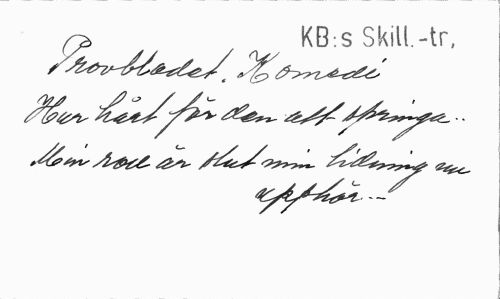 KB:s Skill.-tr,
Provbladet. Komedi
Hur hårt för den att springa..
Min roll är slut min tidning nu
upphör...